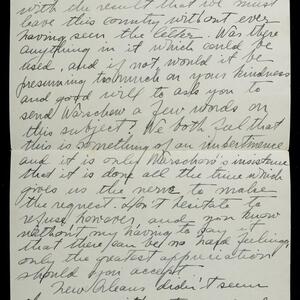 with the result that we must
leave this country without ever
having seen the letter. Was there
anything in it which could be
used, and if not would it be
presuming too much on your kindness
and good will to ask you to
send Warschow a few words on
this subject? We both feel that
this is something of an impertinence
and it is only Warschow's insistence
that it is done all the time which
gives us the nerve to make
the request. Don't hesitate to
refuse, however, and you know
without my having to say it
that there can be no hard feelings,
only the greatest appreciation
should you accept.
New Orleans didn't seem